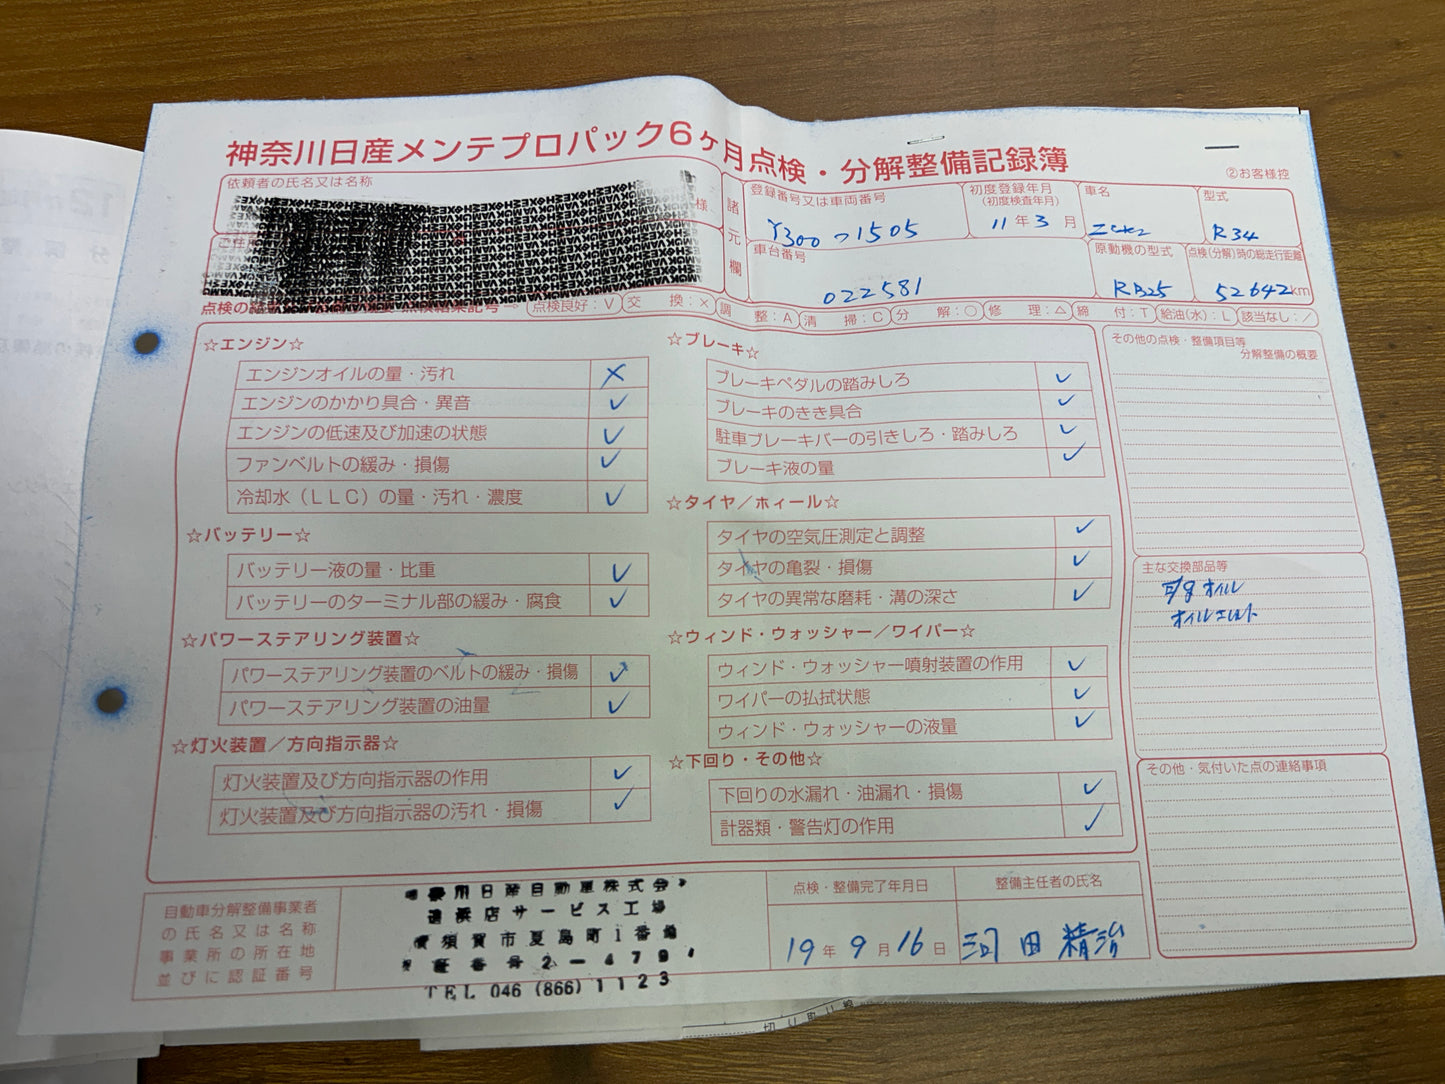 神奈川日産メンテプロパック6ヶ月点検・分解整備記録簿
②お客様控
依頼者の氏名又は名称
様
諸元欄
登録番号又は車両番号
初度登録年月
(初度検査年月)
11年3月
車名
型式
R34
車台番号
022581
原動機の型式
RB25
点検(分解)時の総走行距離
52642km
点検良好:V 交換:× 調整:A 清掃:C 分解:○ 修理:△ 締付:T 給油(水):L 該当なし:/
☆エンジン☆
エンジンオイルの量・汚れ ×
エンジンのかかり具合・異音 ✓
エンジンの低速及び加速の状態 ✓
ファンベルトの緩み・損傷 ✓
冷却水(LLC)の量・汚れ・濃度 ✓
☆バッテリー☆
バッテリー液の量・比重 ✓
バッテリーのターミナル部の緩み・腐食 ✓
☆パワーステアリング装置☆
パワーステアリング装置のベルトの緩み・損傷 ✓
パワーステアリング装置の油量 ✓
☆灯火装置/方向指示器☆
灯火装置及び方向指示器の作用 ✓
灯火装置及び方向指示器の汚れ・損傷 ✓
☆ブレーキ☆
ブレーキペダルの踏みしろ ✓
ブレーキのきき具合 ✓
駐車ブレーキバーの引きしろ・踏みしろ ✓
ブレーキ液の量 ✓
☆タイヤ/ホィール☆
タイヤの空気圧測定と調整 ✓
タイヤの亀裂・損傷 ✓
タイヤの異常な磨耗・溝の深さ ✓
☆ウィンド・ウォッシャー/ワイパー☆
ウィンド・ウォッシャー噴射装置の作用 ✓
ワイパーの払拭状態 ✓
ウィンド・ウォッシャーの液量 ✓
☆下回り・その他☆
下回りの水漏れ・油漏れ・損傷 ✓
計器類・警告灯の作用 ✓
その他の点検・整備項目等
分解整備の概要
主な交換部品等
E/g オイル
オイルエレメト
その他・気付いた点の連絡事項
自動車分解整備事業者
の氏名又は名称
事業所の所在地
並びに認証番号
奈川日産自動車株式会
追浜店サービス工場
横須賀市夏島町1番地
証番号2-479
TEL 046 (866) 1123
点検・整備完了年月日
19年9月16日
整備主任者の氏名
河田精治
切り取り線